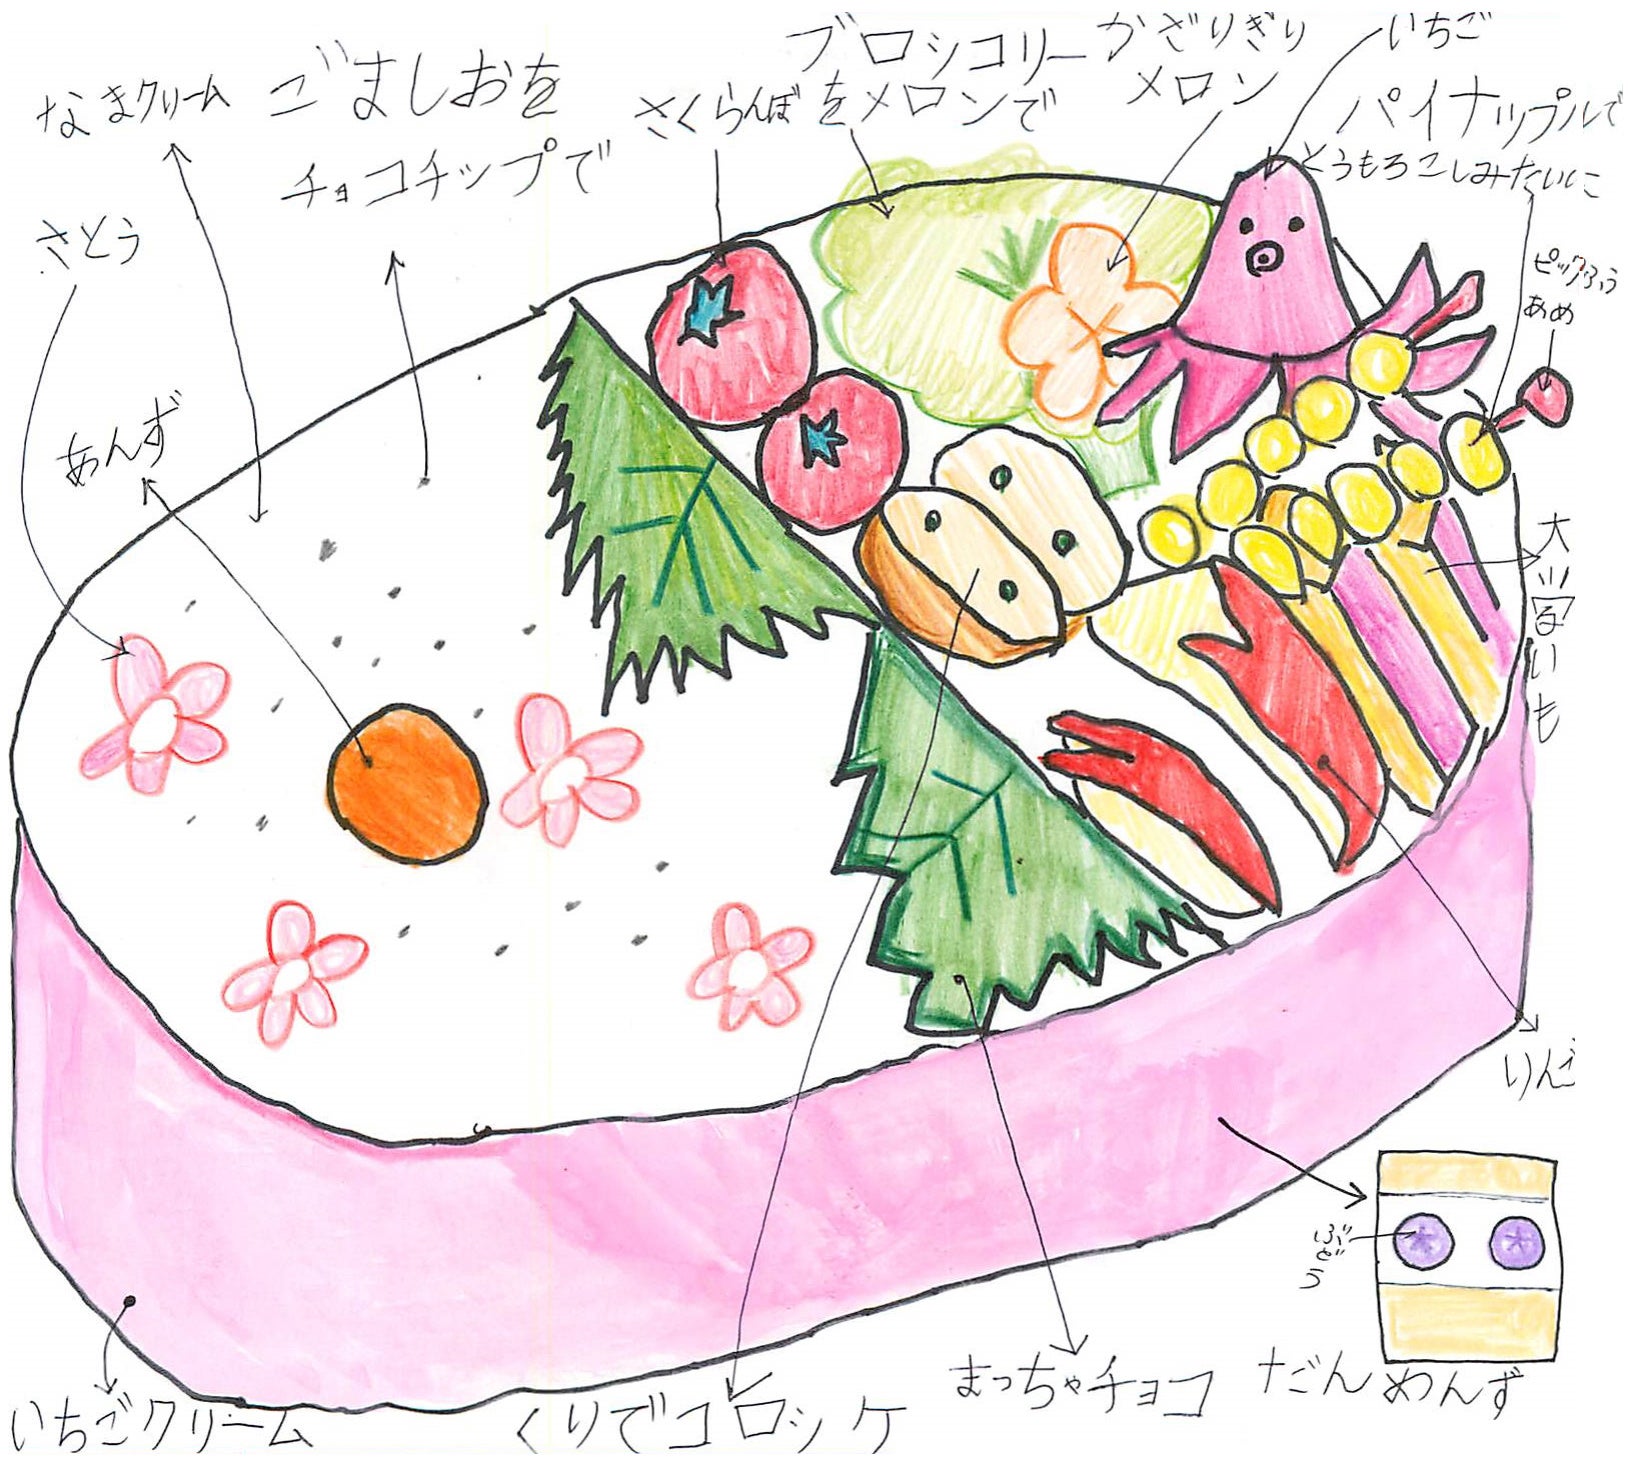 なまクリーム
ごましおを
チョコチップで
さくらんぼ
ブロッコリー
をメロンで
かざりぎり
メロン
いちご
パイナップルで
とうもろこしみたいに
ピックふう
あめ
さとう
あんず
大学いも
りんご
ぶどう
だんめんず
まっちゃチョコ
くりでコロッケ
いちごクリーム